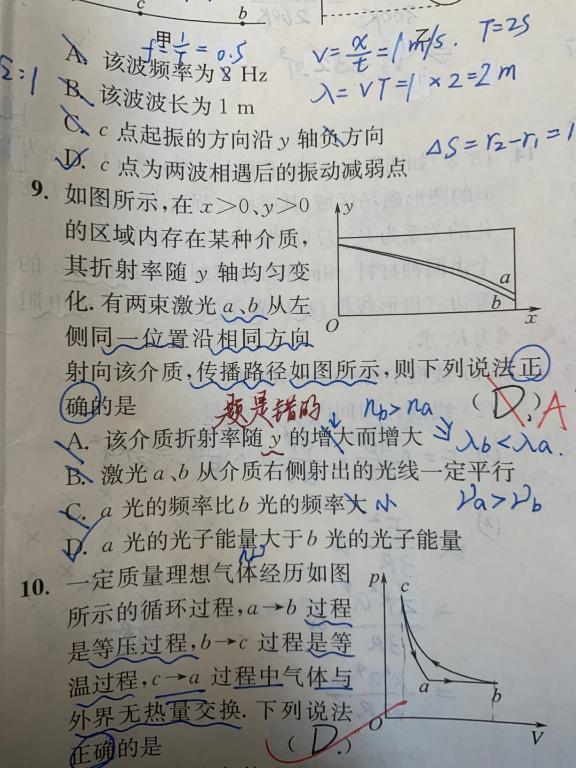 c
b
甲
乙
f=1/T=0.5
v=x/t=1m/s. T=2S
A. 该波频率为 8 Hz
λ=vT=1×2=2m
B. 该波波长为 1 m
C. c 点起振的方向沿 y 轴负方向
ΔS=r₂-r₁=1
D. c 点为两波相遇后的振动减弱点
9. 如图所示,在 x>0、y>0
的区域内存在某种介质,
其折射率随 y 轴均匀变
化. 有两束激光 a、b 从左
侧同一位置沿相同方向
y
a
b
O
x
射向该介质,传播路径如图所示,则下列说法正
确的是
题是错的
n_b>n_a
( D. ) A
A. 该介质折射率随 y 的增大而增大
λb<λa.
B. 激光 a、b 从介质右侧射出的光线一定平行
C. a 光的频率比 b 光的频率大 小
νa>νb
D. a 光的光子能量大于 b 光的光子能量
10. 一定质量理想气体经历如图
所示的循环过程,a→b 过程
是等压过程,b→c 过程是等
温过程,c→a 过程中气体与
外界无热量交换. 下列说法
正确的是
( D. )
p
c
a
b
O
V